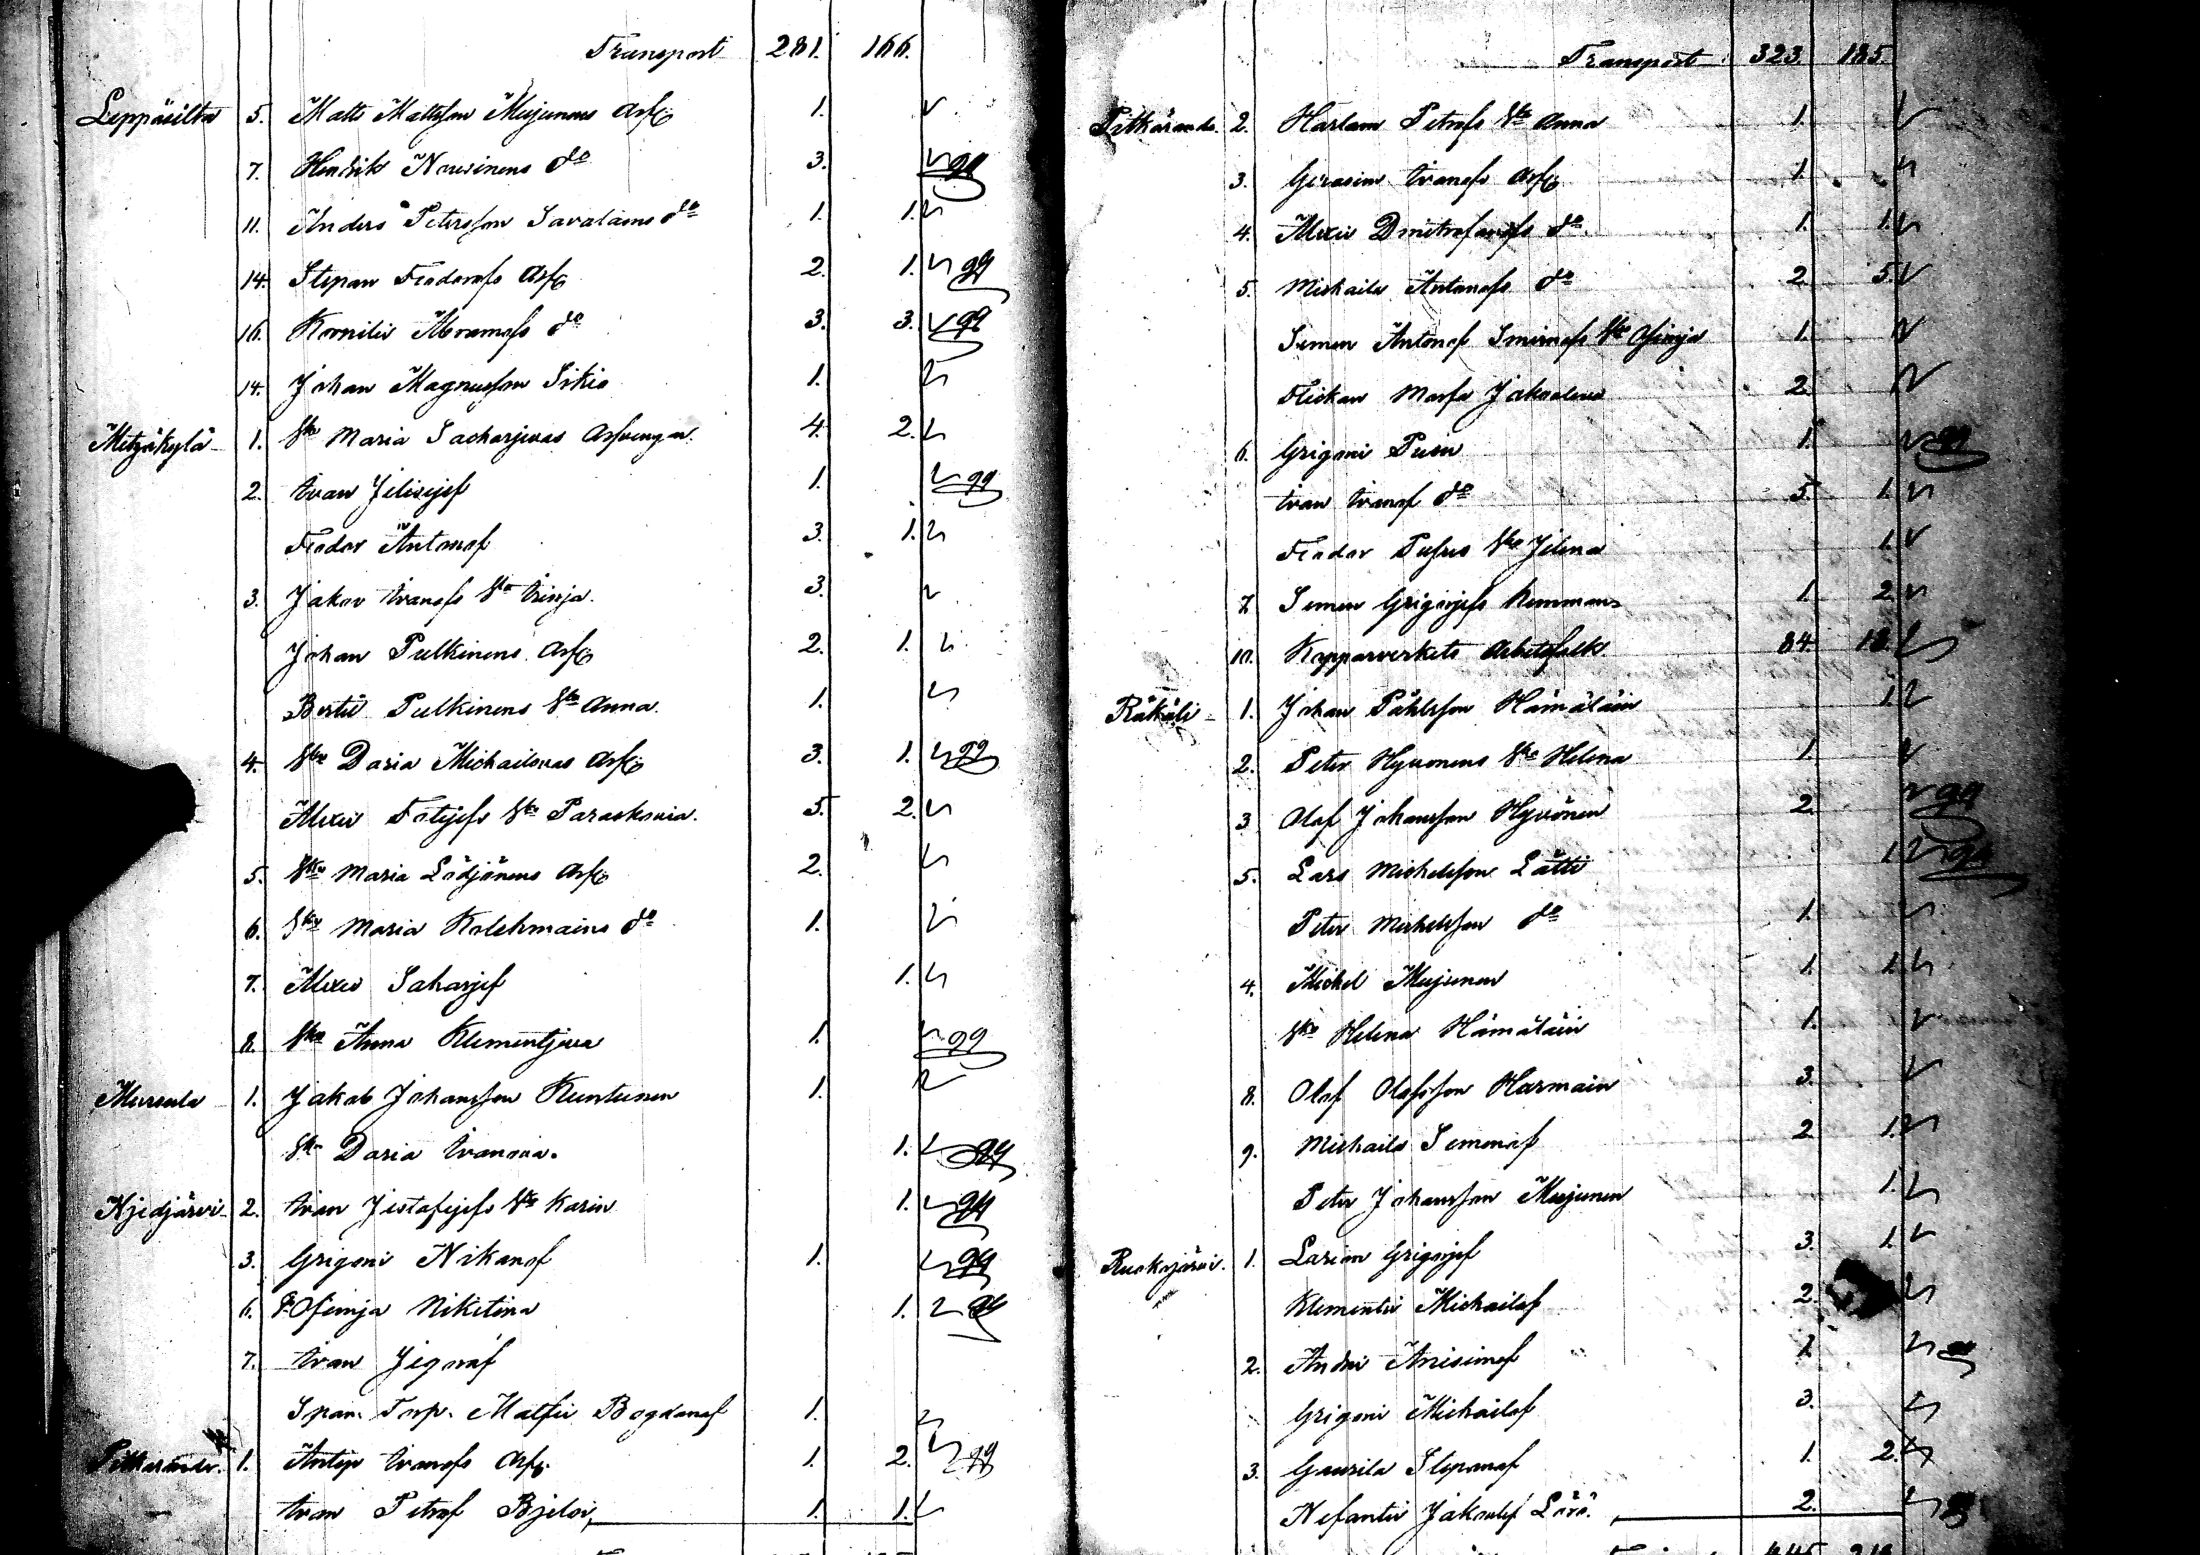 Transport 281. 166.
Leppäsilta 5. Matts Mattsson Meijunens Arfv 1.
7. Hendrik Nousinens do 3.
11. Anders Petersson Savalains do 1. 1.
14. Stepan Feodorofs Arfv 2. 1.
16. Kornilei Abramofs do 3. 3.
14. Johan Magnusson Sikiö 1.
Mitzäkylä 1. Eka Maria Sacharjevas Arfvingar. 4. 2.
2. Ivan Jelisejef 1.
Feodor Antonof 3. 1.
3. Jakov Ivanofs Eka Irinja. 3.
Johan Pulkinens Arfv 2. 1.
Bertil Pulkinens Eka Anna. 1.
4. Eka Daria Michailovas Arfv 3. 1.
Alexei Fotejefs Eka Paraskovia. 5. 2.
5. Eka Maria Lödjönens Arfv 2.
6. Eka Maria Kolehmains do 1.
7. Alexei Saharjef 1.
8. Eka Anna Klementjeva 1.
Mursula 1. Jakob Johansson Kuntunen 1.
Eka Daria Ivanova. 1.
Njedjärvi 2. Ivan Jestafejefs Eka Karin 1.
3. Grigori Nikonof 1.
6. Ofimja Nikitina 1.
7. Ivan Jegorof
Torp. Matfei Bogdanof 1.
Pitkäranda 1. Antip Ivanofs Arfv. 1. 2.
Ivan Petrof Bjeloi, 1. 1.
Transport 323. 185.
Pitkäranda. 2. Harlam Petrofs Eka Anna 1.
3. Gerasim Ivanofs Arfv 1.
4. Alexei Dmitrofanofs do 1. 1.
5. Michaila Antonofs do 2. 5.
Semen Antonof Smirnofs Eka Ofimja 1.
Flickan Marfa Jakovleva 2.
6. Grigori Pusin 1.
Ivan Ivanof do 5. 1.
Feodor Eka Jelena 1.
7. Semen Grigorjefs 1. 2.
10. Kopparverkets Arbetsfolk 84. 18.
Räkäli 1. Johan Påhlsson Hämäläin 1.
2. Peter Hyvönens Eka Helena 1.
3 Olof Johansson Hyvönen 2.
5. Lars Michelsson Lätti 1.
Peter Michelsson do 1.
4. Michel Meijunen 1. 1.
Eka Helena Hämäläin 1.
8. Olof Olofsson Harmain 3.
9. Michaila Semenof 2 1.
Peter Johansson Meijunen 1.
Ruokojärvi. 1. Larion Grigorjef 3. 1.
Klementei Michailof 2.
2. Andrei Anisimof 1.
Grigori Michailof 3.
3. Gavrila Stepanof 1. 2.
Nefantei Jakovlef Lörö. 2.